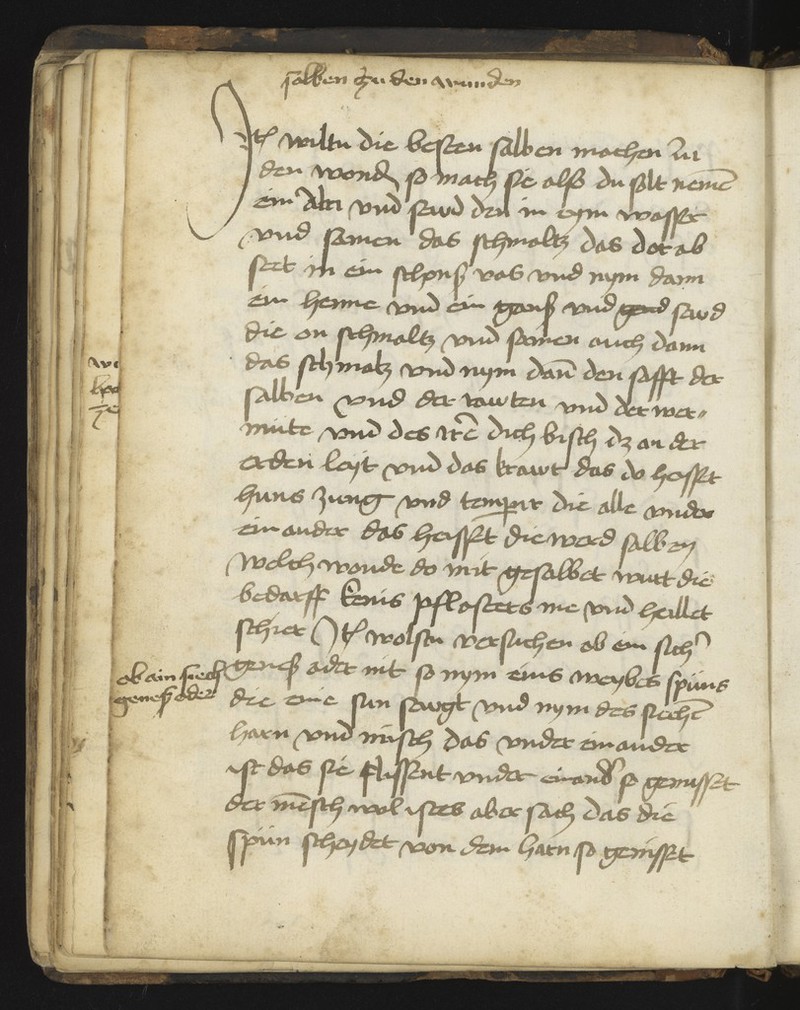 salben zu den wunden
Itē wiltu die besten salben machen zu
den wondē so mach sie also du solt nemē
ein und sewd den in eym wasser
vnd samen das schmaltz das dor ab
seet in ein schons vas vnd nym dann
ein henne vnd ein gans vnd sewd
die on schmaltz vnd samen auch dann
das schmalz vnd nym dañ den safft der
salben vnd der rawten vnd der wer=
mute vnd des dz an der
erden leyt vnd das krawt das do heysset
huns zung vnd temperir die alle vnder
ein ander das heisset die werd salben
welch wonde do mit gesalbet wirt die
bedarff keins pflasters me vnd heilet
schier Itē woltu versuchen ob ein siech
genese oder nit so nym eins weybes spüns
die eine sun sewgt vnd nym des siechē
harn vnd misch das vnder ein ander
ist das sie flissent vnder einand' so genisset
der mēsch wol ist es aber sach das die
spün scheydet von dem harn so genisset
ob ain siech
genes oder